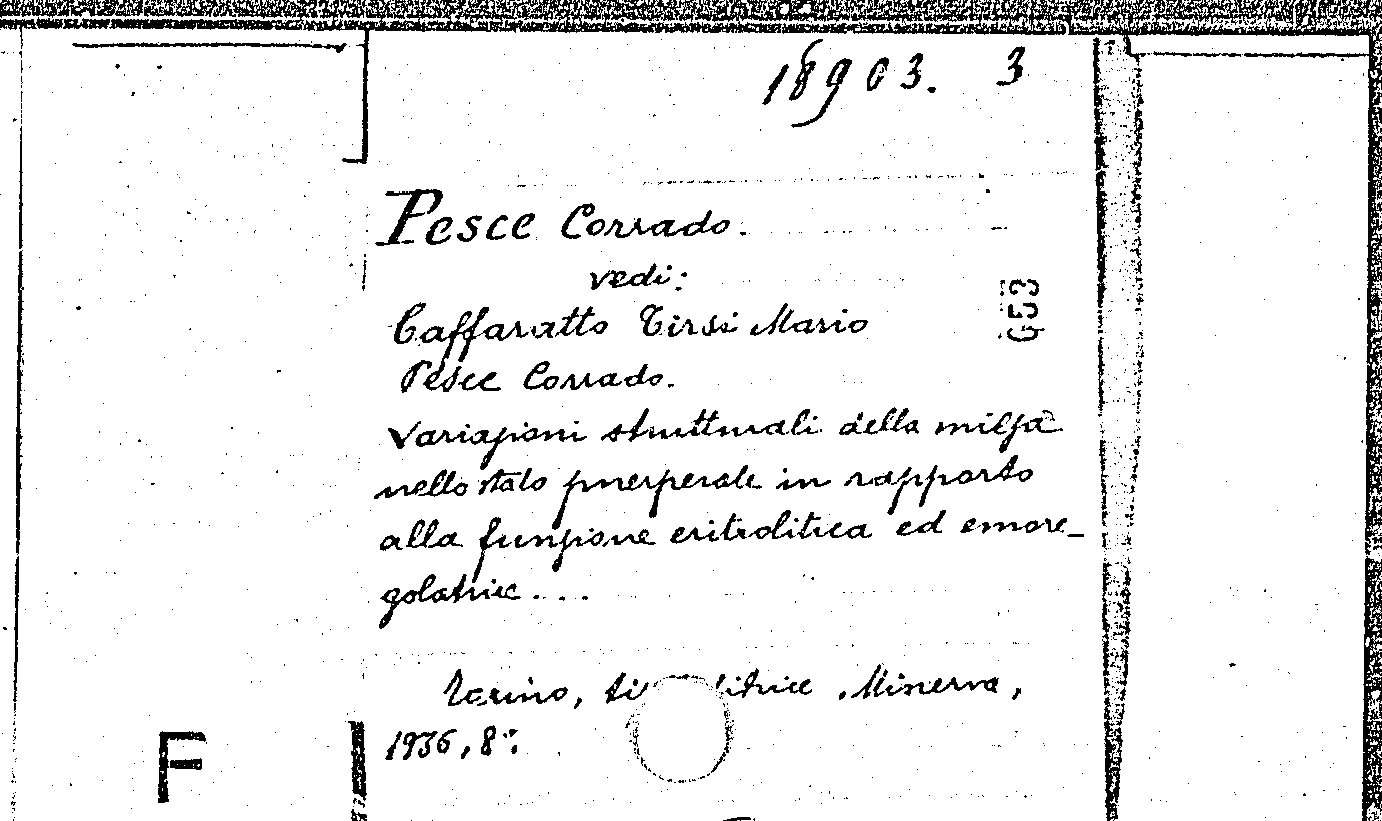 18903. 3
Pesce Corrado.
vedi:
Caffaratto Tirsi Mario
Pesce Corrado.
Variazioni strutturali della milza
nello stato puerperale in rapporto
alla funzione eritrolitica ed emore_
golatrice...
Torino, ti ditrice Minerva,
1936, 8°.
G53
F